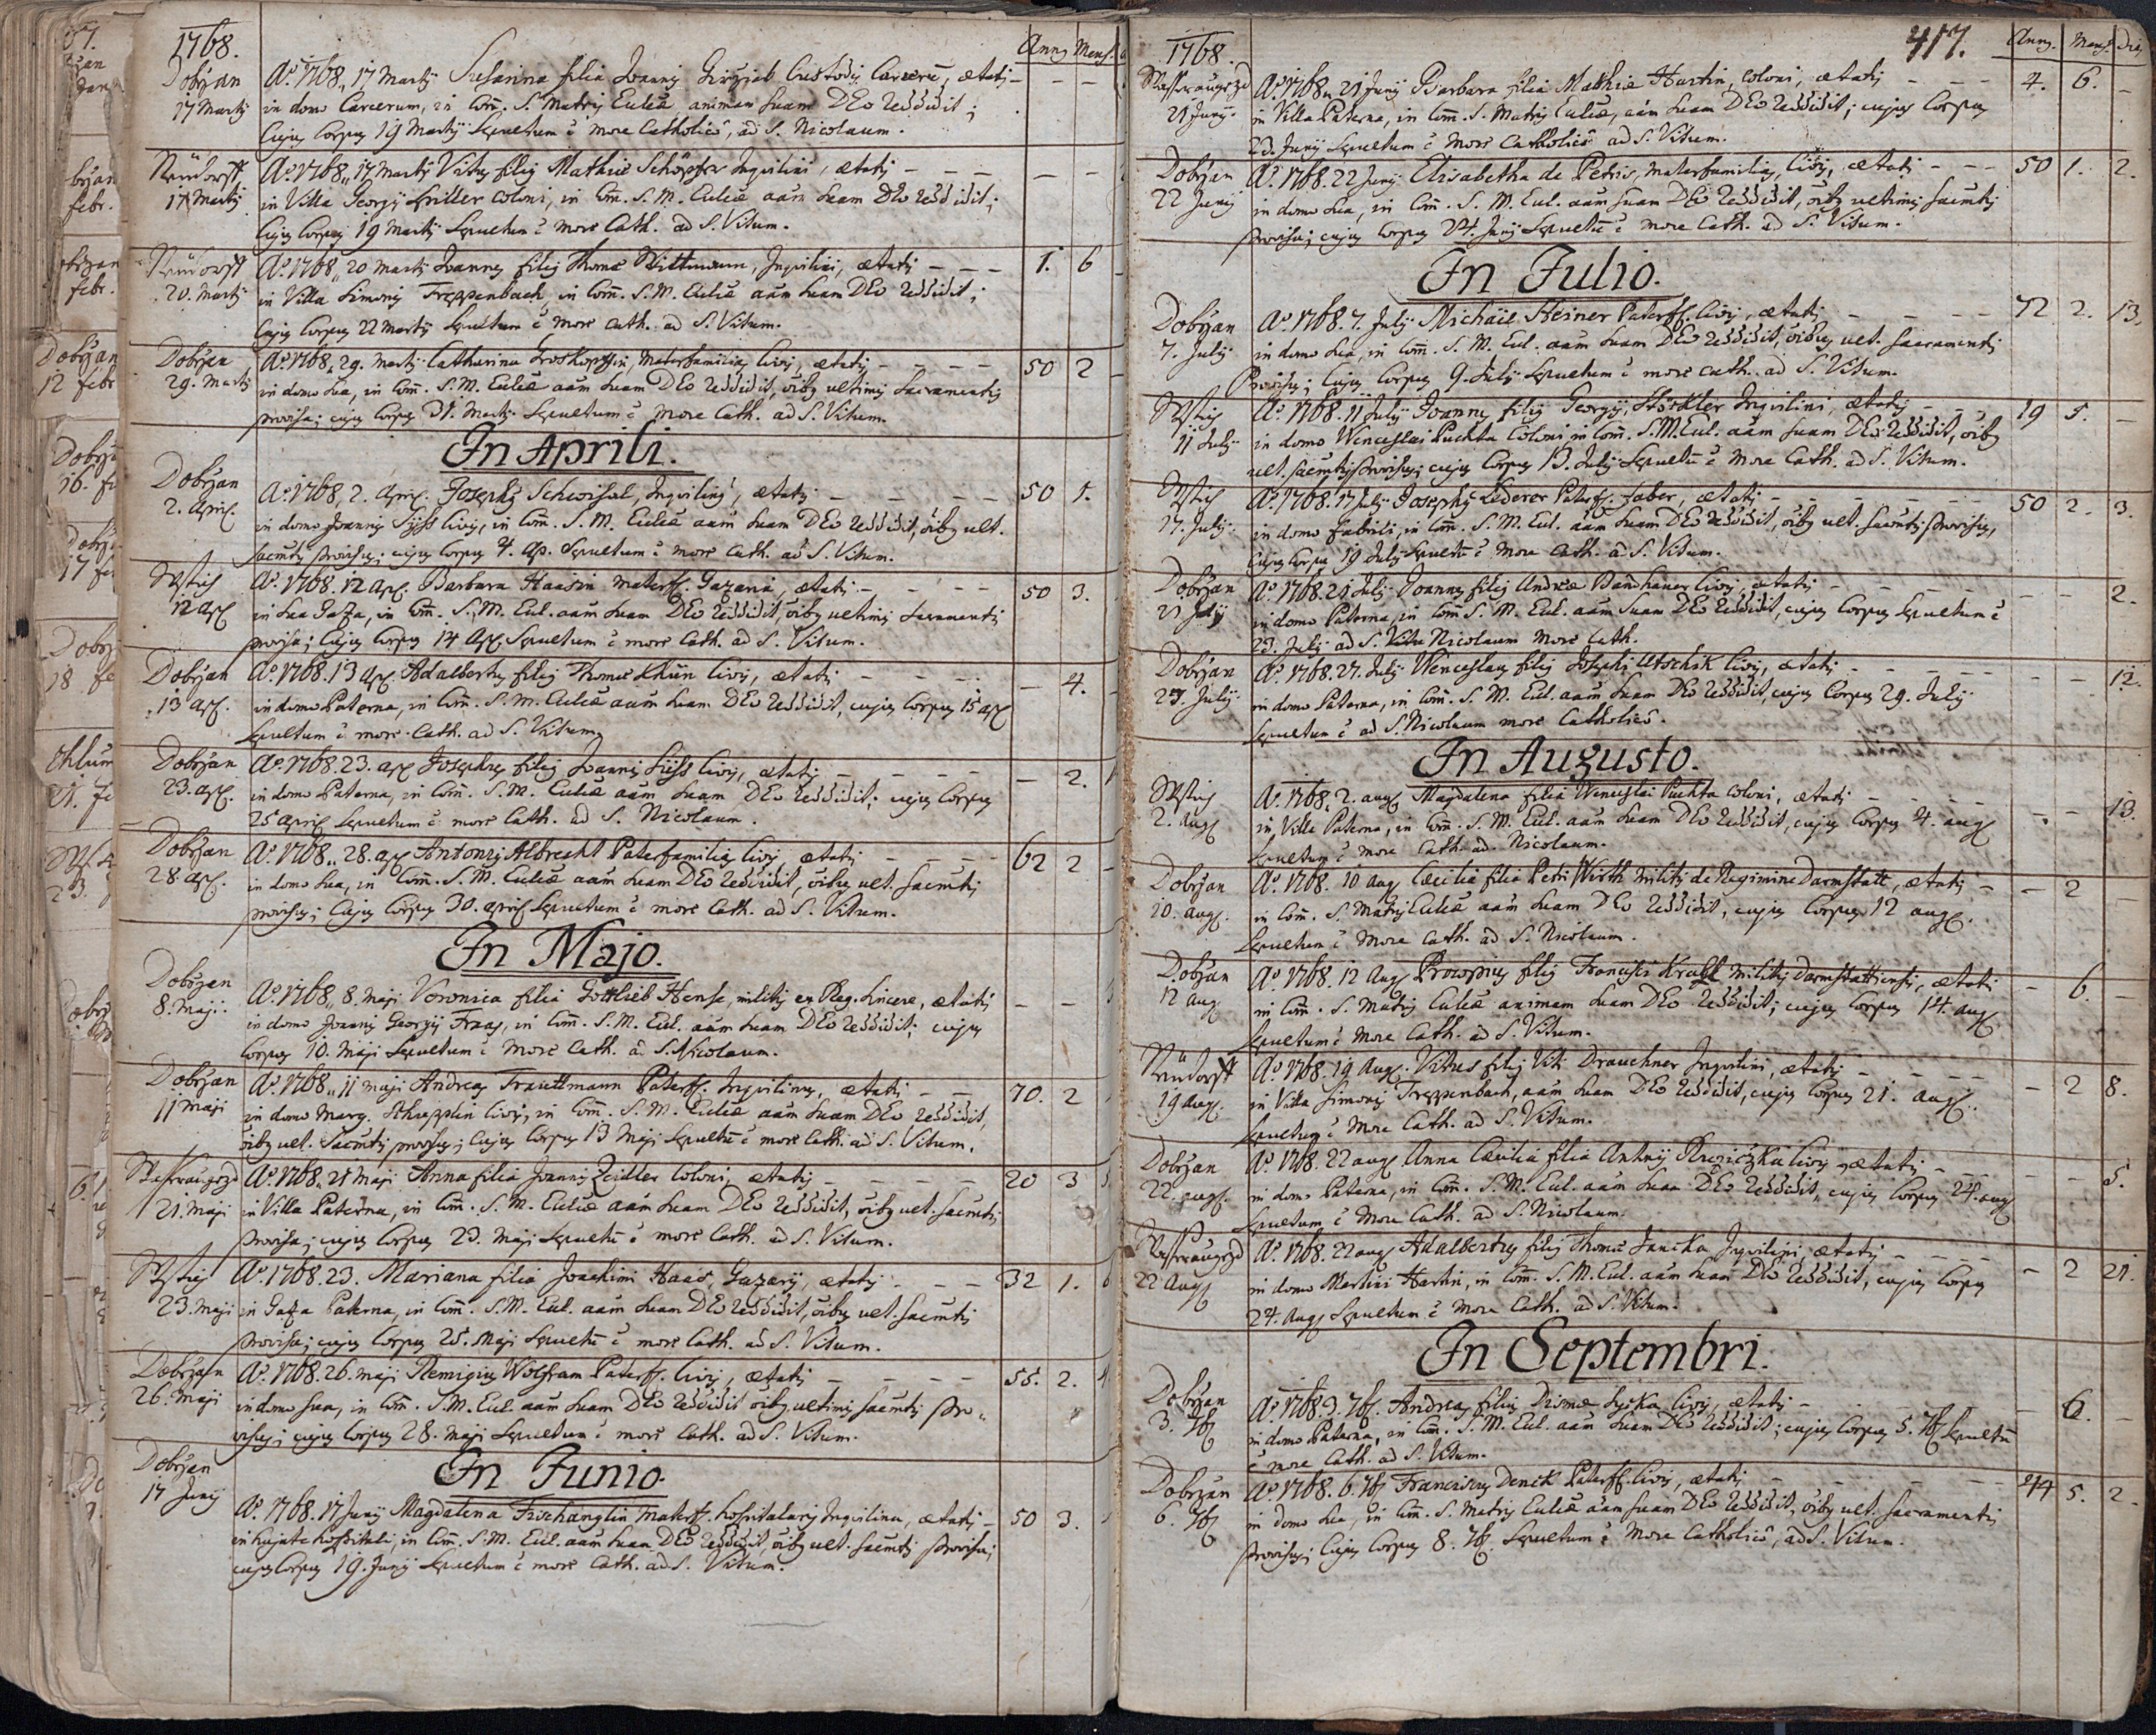 1768.
Anny Mens.
Dobrzan Aº. 1768,, 17 Martij Susanna filia Joannis Custodis Carcerū, ætatis — — —
17 Martij in domo Carcerum, in Com̄. S. Matris Eccliæ animam suam DEo reddidit;
Cujus Corpus 19 Martij Sepultum ē more Catholicō, ad S. Nicolaum.
Neüdorff Aº. 1768,, 17 Martij Vitus filius Mathiæ Schöpfer Inquilini, ætatis — — —
17 Martij in Villa Georgij Spiller Coloni, in Com̄. S. M. Eccliæ aām suam DEo reddidit;
Cujus Corpus 19 Martij Sepultum ē more Cath. ad S. Vitum.
Neüdorff Aº. 1768,, 20 Martij Joannes filius Thomæ Wittmann, Inquilini, ætatis — — — 1. 6
20. Martij in Villa Simonis Treppenbach, in Com̄. S. M. Eccliæ aām suam DEo reddidit;
Cujus Corpus 22 Martij Sepultum ē more Cath. ad S. Vitum.
Dobrzan Aº. 1768,, 29. Martij Catharina Materfamilias Civis, ætatis — — — 50 2
29. Martij in domo sua, in Com̄. S. M. Eccliæ aām suam DEo reddidit, oībus ultimis Sacramentis
provisa; cujus Corpus 31. Martij Sepultum ē more Cath. ad S. Vitum.
In Aprili.
Dobrzan Aº. 1768, 2. April. Josephus Schwisal, Inquilinus, ætatis — — — 50 1.
2. April. in domo Joannis Süss Civis, in Com̄. S. M. Eccliæ aām suam DEo reddidit, oībus ult.
sacmtis provisus; cujus Corpus 4. Ap. Sepultum ē more Cath. ad S. Vitum.
Aº. 1768. 12 Apl. Barbara Haasin Materff. Gazaria, ætatis — — — 50 3.
12 Apl in sua Gaza, in Com̄. S. M. Eccl. aām suam DEo reddidit, oībus ultimis Sacramentis
provisa; Cujus Corpus 14 Apl. Sepultum ē more Cath. ad S. Vitum.
Dobrzan Aº. 1768. 13 Apl. Adalbertus filius Thomæ Khün Civis, ætatis — — — 4.
13 Apl. in domo Paterna, in Com̄. S. M. Eccliæ aām suam DEo reddidit, cujus Corpus 15 Apl
Sepultum ē more Cath. ad S. Vitum.
Dobrzan Aº. 1768. 23. Apl Josephus filius Joannis Süss Civis, ætatis — — — 2.
23. Apl. in domo Paterna, in Com̄. S. M. Eccliæ aām suam DEo reddidit; cujus Corpus
25 April Sepultum ē more Cath. ad S. Nicolaum.
Dobrzan Aº. 1768,, 28. Apl Antonius Albrecht Paterfamilias Civis, ætatis — — — 62 2
28. Apl. in domo sua, in Com̄. S. M. Eccliæ aām suam DEo reddidit, oībus ult. sacmtis
provisus; Cujus Corpus 30. April Sepultum ē more Cath. ad S. Vitum.
In Majo.
Dobrzan Aº. 1768,, 8. Maji Veronica filia Gottlieb Hense, militis ex Reg. Sincere, ætatis — —
8. Maji. in domo Joannis Georgij Fraas, in Com̄. S. M. Eccl. aām suam DEo reddidit; cujus
Corpus 10. Maji Sepultum ē more Cath. ad S. Nicolaum.
Dobrzan Aº. 1768,, 11 Maji Andreas Trauttmann Paterff. Inquilinus, ætatis — — 70. 2
11 Maji in domo Marg. Schepplin Civis, in Com̄. S. M. Eccliæ aām suam DEo reddidit,
oībus ult. Sacmtis provisus; Cujus Corpus 13 Maji Sepultū ē more Cath. ad S. Vitum.
Aº. 1768,, 21 Maji Anna filia Joannis Zeidler Coloni, ætatis — — — 20 3
21. Maji in Villa Paterna, in Com̄. S. M. Eccliæ aām suam DEo reddidit, oībus ult. sacmtis
provisa; cujus Corpus 23. Maji Sepultū ē more Cath. ad S. Vitum.
Aº. 1768. 23. Mariana filia Joachimi Haas, Gazarij, ætatis — — — 32 1.
23. Maji in Gaza Paterna, in Com̄. S. M. Eccl. aām suam DEo reddidit, oībus ult. sacmtis
provisa; cujus Corpus 25. Maji Sepultū ē more Cath. ad S. Vitum.
Dobrzan Aº. 1768. 26. Maji Remigius Wolfram Paterff. Civis, ætatis — — — 55. 2.
26. Maji in domo sua, in Com̄. S. M. Eccl. aām suam DEo reddidit oībus ultimis sacmtis pro„
visus; cujus Corpus 28. Maji Sepultum ē more Cath. ad S. Vitum.
In Junio
Dobrzan
17 Junij Aº. 1768. 17 Junij Magdalena Materff. hospitalaris Inquilina, ætatis — 50 3.
in hujate hospitali, in Com̄. S. M. Eccl. aām suam DEo reddidit, oībus ult. sacmtis provisa;
cujus Corpus 19. Junij Sepultum ē more Cath. ad S. Vitum.
1768.
417. Anny. Mens. Dies
Aº. 1768,, 21 Junij Barbara filia Mathiæ Hartin, Coloni, ætatis — — — 4. 6.
21 Junij. in Villa Paterna, in Com̄. S. Matris Eccliæ, aām suam DEo reddidit; cujus Corpus
23. Junij Sepultum ē more Catholicō ad S. Vitum.
Dobrzan Aº. 1768. 22 Junij Elisabetha de Petris, Materfamilias, Civis, ætatis — — — 50 1. 2.
22 Junij in domo sua, in Com̄. S. M. Eccl. aām suam DEo reddidit, oībus ultimis sacmtis
provisa; cujus Corpus 24. Junij Sepultū ē more Cath. ad S. Vitum.
In Julio.
Dobrzan Aº. 1768. 7. Julij Michaël Steiner Paterff. Civis, ætatis — — — 72 2. 13.
7. Julij in domo sua, in Com̄. S. M. Eccl. aām suam DEo reddidit, oībus ult. sacramentis
Provisus; Cujus Corpus 9. Julij Sepultum ē more Cath. ad S. Vitum.
Aº. 1768. 11 Julij Joannes filius Georgij Stöckler Inquilini, ætatis — — 19 5. —
11 Julij in domo Wenceslai Puchta Coloni in Com̄. S. M. Eccl. aām suam DEo reddidit, oībus
ult. sacmtis provisus; cujus Corpus 13. Julij Sepultū ē more Cath. ad S. Vitum.
Aº. 1768. 17 Julij Josephus Lederer Paterff. faber, ætatis — — — 50 2. 3.
17. Julij. in domo fabrili, in Com̄. S. M. Eccl. aām suam DEo reddidit, oībus ult. sacmtis provisus,
Cujus Corpus 19 Julij Sepultū ē more Cath. ad S. Vitum.
Dobrzan Aº. 1768. 21 Julij Joannes filius Andreæ Civis, ætatis — — — 2.
21 Julij in domo Paterna, in Com̄ S. M. Eccl. aām suam DEo reddidit, cujus Corpus Sepultum ē
23. Julij ad S. Nicolaum more Cath.
Dobrzan Aº. 1768. 27. Julij Wenceslaus filius Josephi Civis, ætatis — — — 12.
27. Julij. in domo Paterna, in Com̄. S. M. Eccl. aām suam DEo reddidit, cujus Corpus 29. Julij
Sepultum ē ad S. Nicolaum more Catholicō.
In Augusto.
Aº. 1768. 2. Augl Magdalena filia Wenceslai Puchta Coloni, ætatis — — — 13.
2. Augl in Villa Paterna, in Com̄. S. M. Eccl. aām suam DEo reddidit, cujus Corpus 4. Augl
Sepultum ē more Cath. ad. Nicolaum.
Dobrzan Aº. 1768. 10 Aug Cæcilia filia Petri Wirth militis de Regimine Darmstatt, ætatis — — 2
10. Augl. in Com̄. S. Matris Eccliæ aām suam DEo reddidit, cujus Corpus 12 Augl.
Sepultum ē more Cath. ad S. Nicolaum.
Dobrzan Aº. 1768. 12 Augl Procopius filius Francisci militis Darmstattiensis, ætatis — 6. —
12 Aug in Com̄. S. Matris Eccliæ animam suam DEo reddidit; cujus Corpus 14. Augl
Sepultum ē more Cath. ad S. Vitum.
Neüdorff Aº. 1768. 19 Augl. Vitus filius Viti Drauchner Inquilini, ætatis — — — 2 8.
19 Augl. in Villa Simonis Treppenbach, aām suam DEo reddidit, cujus Corpus 21. Augl.
Sepultum ē more Cath. ad S. Vitum.
Dobrzan Aº. 1768. 22 Augl Anna Cæcilia filia Antonij Civis, ætatis — — — 5.
22. Augl. in domo Paterna, in Com̄. S. M. Eccl. aām suam DEo reddidit, cujus Corpus 24. Augl
Sepultum ē more Cath. ad S. Nicolaum.
Aº. 1768. 22 Augl Adalbertus filius Thomæ Jancka Inquilini, ætatis — — 2 21.
22 Augl in domo Martini Hartin, in Com̄. S. M. Eccl. aām suam DEo reddidit, cujus Corpus
24. Augl Sepultum ē more Cath. ad S. Vitum.
In Septembri.
Dobrzan Aº. 1768. 3. 7br. Andreas filius Dismæ Civis, ætatis — — 6.
3. 7br in domo Paterna, in Com̄. S. M. Eccl. aām suam DEo reddidit; cujus Corpus 5. 7br Sepultū
ē more Cath. ad S. Vitum.
Dobrzan Aº. 1768. 6. 7br Franciscus Denck Paterff. Civis, ætatis — — — 44 5. 2.
6. 7br in domo sua, in Com̄. S. Matris Eccliæ aām suam DEo reddidit, oībus ult. sacramentis
provisus; Cujus Corpus 8. 7br. Sepultum ē more Catholicō, ad S. Vitum.